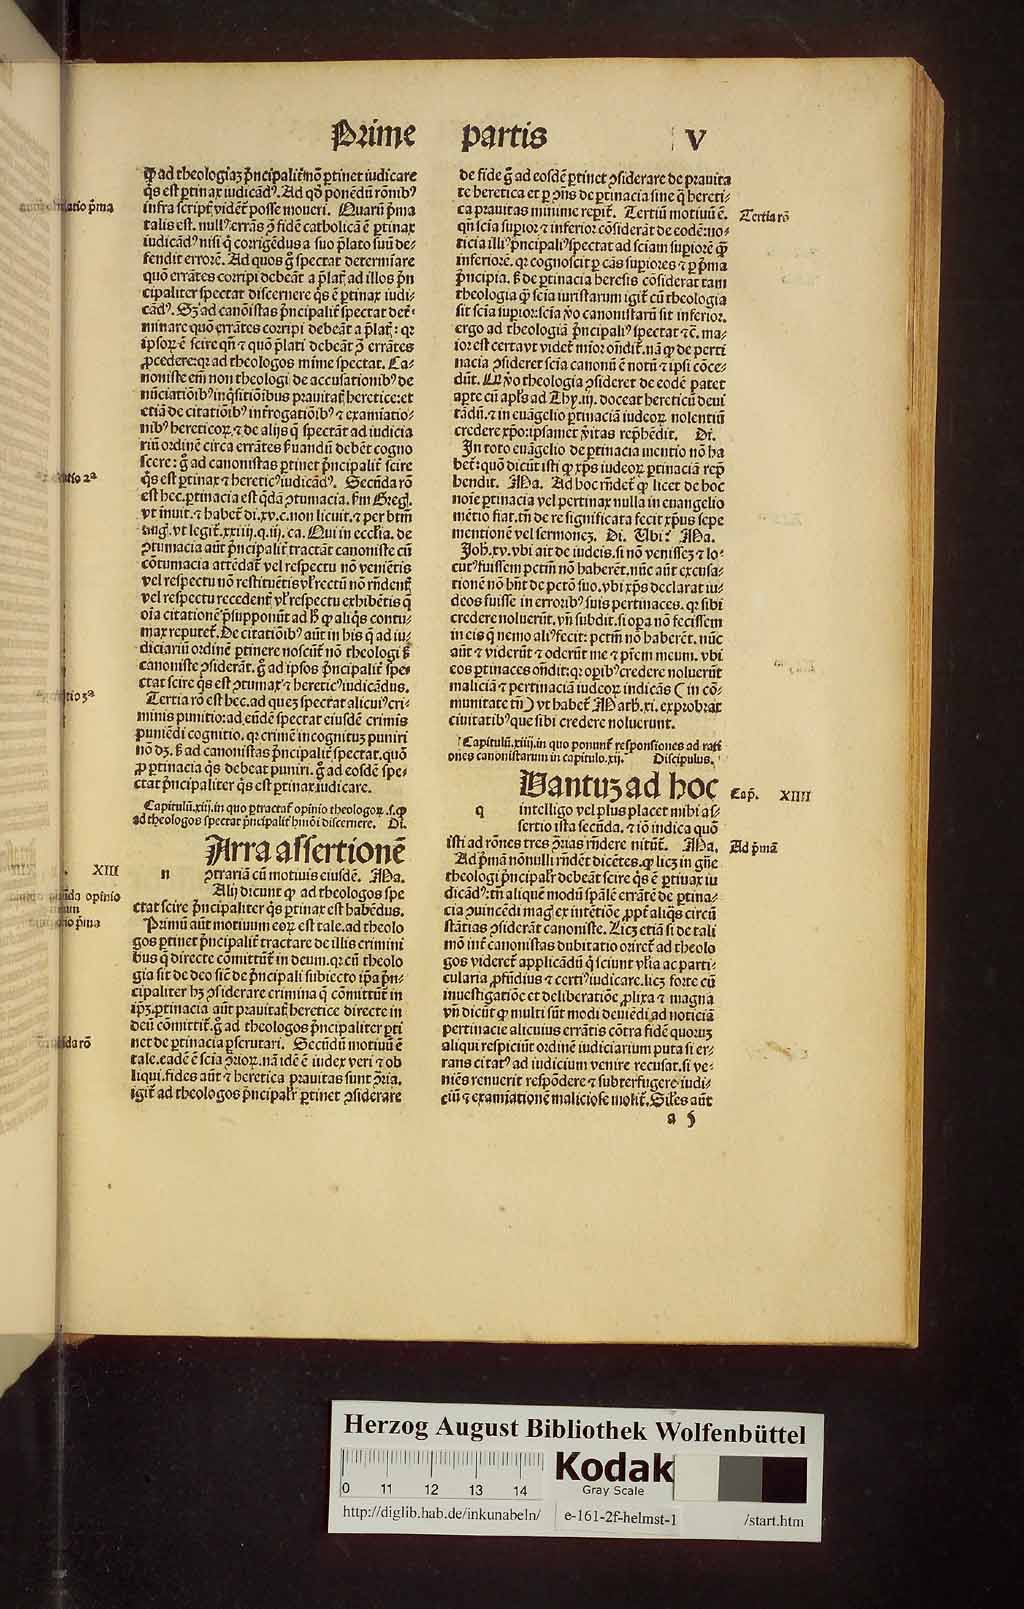 Prime partis V
ꝙ ad theologiaꝫ p̃ncipalit̃ nõ ꝑtinet iudicare
q̃s est ꝑtinax iudicãdꝰ. Ad qd̃ ponẽdũ rõnibꝰ
infra script̃ vidẽt̃ posse moueri. Quarũ p̃ma
talis est. nullꝰ errãs ꝯ̃ fidẽ catholicã ẽ ꝑtinax
iudicãdꝰ nisi q̃ corrigẽdus a suo p̃lato suũ de⸗
fendit errorẽ. Ad quos g̃ spectat determĩare
quõ errãtes corripi debeãt a p̃lat̃ ad illos p̃n
cipaliter spectat discernere q̃s ẽ ꝑtinax iudi⸗
cãdꝰ. Sꝫ ad canõistas p̃ncipalit̃ spectat det̃⸗
minare quõ errãtes corripi debeãt a p̃lat̃: qꝛ
ipsoꝝ ẽ scire qñ ⁊ quõ p̃lati debeãt ꝯ̃ errãtes
ꝓcedere: qꝛ ad theologos mĩme spectat. Ca⸗
noniste em̃ non theologi de accusationibꝰ de
nũciatiõibꝰ inq̃sitiõibus prauitat̃ heretice: et
etiã de citatiõibꝰ inťrogatiõibꝰ ⁊ examĩatio⸗
nibꝰ hereticoꝝ ⁊ de alijs q̃ spectãt ad iudicia
riũ ordinẽ circa errãtes ẜuandũ debẽt cogno
scere: g̃ ad canonistas ꝑtinet p̃ncipalit̃ scire
q̃s est ꝑtinax ⁊ hereticꝰ iudicãdꝰ. Secũda rõ
est hec. ꝑtinacia est q̃dã ꝯtumacia. ẜm Greg̃.
vt ĩnuit. ⁊ habet̃ di. xv. c. non licuit. ⁊ per btm̃
aug̃. vt legit̃. xxiiij. q. iij. ca. Qui in eccl̃ia. de
ꝯtumacia aũt p̃ncipalit̃ tractãt canoniste cũ
cõtumacia attẽdat̃ vel respectu nõ veniẽtis
vel respectu nõ restituẽtis vl̃ rectũ nõ rñdent̃
vel respectu recedent̃ vl̃ respectu exhibẽtis q̃
oĩa citationẽ p̃supponũt ad hꝰ ꝙ aliq̃s contu⸗
max reputet̃. De citatiõibꝰ aũt in his q̃ ad iu⸗
diciariũ ordinẽ ꝑtinere noscũt̃ nõ theologi ẜ
canoniste ꝯsiderãt. g̃ ad ipsos p̃ncipalit̃ spe⸗
ctat scire q̃s est ꝯtumax ⁊ hereticꝰ iudicãdus.
Tertia rõ est hec. ad queꝫ spectat alicuiꝰ cri⸗
minis punitio: ad eũdẽ spectat eiusdẽ crimis
puniẽdi cognitio. qꝛ crimẽ incognituꝫ puniri
nõ dꝫ. ẜ ad canonistas p̃ncipalit̃ spectat. quõ
ꝓ ꝑtinacia q̃s debeat puniri. g̃ ad eosdẽ spe⸗
ctat p̃ncipaliter q̃s est ꝑtinax iudicare.
Capitulũ. xiij. in quo ꝑtractat̃ opinio theologoꝝ .s. ꝙ
ad theologos spectat p̃ncipalit̃ hmõi discernere. Di.
n Arra assertionẽ
ꝯtrariã cũ motiuis eiusdẽ. Ma.
Alij dicunt ꝙ ad theologos spe
ctat scire p̃ncipaliter q̃s ꝑtinax est habẽdus.
Primũ aũt motiuum eoꝝ est tale. ad theolo
gos ꝑtinet p̃ncipalit̃ tractare de illis crimini
bus q̃ directe cõmittũt̃ in deum. qꝛ cũ theolo
gia sit de deo sic̃ de p̃ncipali subiecto ip̃a p̃n⸗
cipaliter hꝫ ꝯsiderare crimina q̃ cõmittũt̃ in
ip̃ꝫ. ꝑtinacia aũt prauitat̃ heretice directe in
deũ cõmittit̃. g̃ ad theologos p̃ncipaliter ꝑti
net de ꝑtinacia ꝑscrutari. Secũdũ motiuũ ẽ
tale. eadẽ ẽ scĩa ꝯ̃rioꝝ. nã idẽ ẽ iudex veri ⁊ ob
liqui. fides aũt ⁊ heretica prauitas sunt ꝯ̃ria.
igit̃ ad theologos p̃ncipalr̃ ꝑtinet ꝯsiderare
de fide g̃ ad eosdẽ ꝑtinet ꝯsiderare de prauita
te heretica et ꝑ ꝯñs de ꝑtinacia sine q̃ hereti⸗
ca prauitas minime reꝑit̃. Tertiũ motiuũ ẽ.
qñ scĩa suꝑior ⁊ inferior cõsiderãt de eodẽ: no⸗
ticia illiꝰ p̃ncipaliꝰ spectat ad sciam suꝑiorẽ q̃ꝫ
inferiorẽ. qꝛ cognoscit̃ ꝑ cãs suꝑiores ⁊ ꝑ p̃ma
p̃ncipia. ẜ de ꝑtinacia heresis cõsiderat tam
theologia q̃ꝫ scĩa iuristarum igit̃ cũ theologia
sit scĩa suꝑior: scĩa ṽo canonistarũ sit inferior.
ergo ad theologiã p̃ncipaliꝰ spectat ⁊c̃. ma⸗
ior est certa vt videt̃ mĩor oñdit̃. nã ꝙ de ꝑti
nacia ꝯsideret scĩa canonũ ẽ notũ ⁊ ipsi cõce⸗
dũt. Qꝙ ṽo theologia ꝯsideret de eodẽ patet
aꝑte cũ apl̃s ad Thy̰. iij. doceat hereticũ deui
tãdũ. ⁊ in euãgelio ꝑtinaciã iudeoꝝ nolentiũ
credere xp̃o: ipsamet ṽitas rep̃hẽdit. Di.
In toto euãgelio de ꝑtinacia mentio nõ ha
bet̃: quõ dicũt isti ꝙ xp̃s iudeoꝝ ꝑtinaciã rep̃
hendit. Ma. Ad hoc rñdet̃ ꝙ licet de hoc
noĩe ꝑtinacia vel pertinax nulla in euangelio
mẽtio fiat. tñ de re significata fecit xp̃us sepe
mentionẽ vel sermoneꝫ. Di. Ubi? Ma.
Joh̃. xv. vbi ait de iudeis. si nõ venisseꝫ ⁊ lo⸗
cutꝰ fuissem pctm̃ nõ haberẽt. nũc aũt excusa⸗
tionẽ nõ hñt de pctõ suo. vbi xp̃s declarat iu⸗
deos fuisse in erroribꝰ suis pertinaces. qꝛ sibi
credere noluerũt. vñ subdit. si oꝑa nõ fecissem
in eis q̃ nemo aliꝰ fecit: pctm̃ nõ haberẽt. nũc
aũt ⁊ viderũt ⁊ oderũt me ⁊ p̃rem meum. vbi
eos ꝑtinaces oñdit: qꝛ oꝑibꝰ credere noluerũt
maliciã ⁊ pertinaciã iudeoꝝ indicãs (in cõ⸗
munitate tñ) vt habet̃ Math̃. xi. exprobrat
ciuitatibꝰ que sibi credere noluerunt.
Capitulũ. xiiij. in quo ponunt̃ responsiones ad rati
ones canonistarum in capitulo. xij. Discipulus.
q Uantuꝫ ad hoc
intelligo vel plus placet mihi as⸗
sertio ista secũda. ⁊ iõ indica quõ
isti ad rõnes tres ꝯ̃rias rñdere nitũt̃. Ma.
Ad p̃mã nõnulli rñdẽt dicẽtes. ꝙ licꝫ in gñe
theologi p̃ncipalr̃ debeãt scire q̃s ẽ ꝑtinax iu
dicãdꝰ: tñ aliquẽ modũ sp̃alẽ errãtẽ de ꝑtina⸗
cia ꝯuincẽdi magꝭ ex intẽtiõe ꝓpt̃ aliq̃s circũ
stãtias ꝯsiderãt canoniste. Licꝫ etiã si de tali
mõ int̃ canonistas dubitatio oriret̃ ad theolo
gos videret̃ applicãdũ q̃ sciunt vl̃ia ac parti⸗
cularia ꝓfũdius ⁊ certiꝰ iudicare. licꝫ forte cũ
inuestigatiõe et deliberatiõe ꝓlixa ⁊ magna
vñ dicũt ꝙ multi sũt modi deuiẽdi ad noticiã
pertinacie alicuius errãtis cõtra fidẽ quoruꝫ
aliqui respiciũt ordinẽ iudiciarium puta si er⸗
rans citatꝰ ad iudicium venire recusat. si ve⸗
niẽs renuerit respõdere ⁊ subterfugere iudi⸗
ciũ ⁊ examĩationẽ maliciose molit̃. Sil̃es aũt
a 5
Tertia rõ
Cap̃. XIIII
Ad p̃mã
XIII
Herzog August Bibliothek Wolfenbüttel
0 11 12 13 14
Kodak
Gray Scale
http://diglib.hab.de/inkunabeln/ e-161-2f-helmst-1 /start.htm